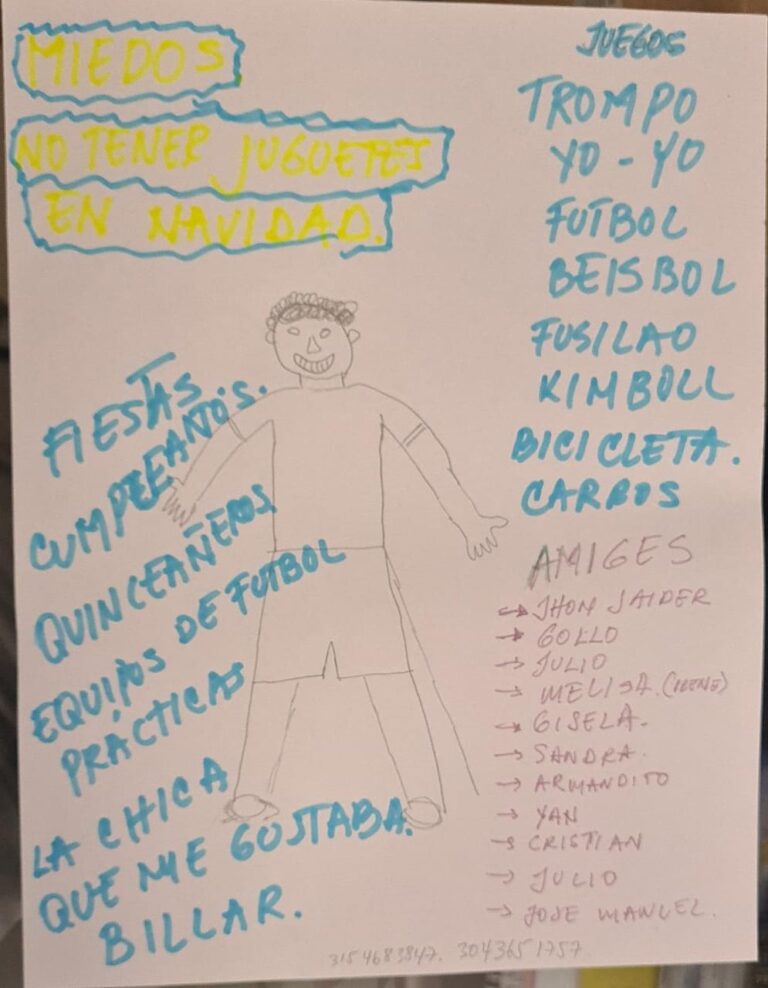 MIEDOS
NO TENER JUGUETES
EN NAVIDAD.
FIESTAS.
CUMPLEAÑOS.
QUINCEAÑEROS
EQUIPOS DE FUTBOL
PRÁCTICAS
LA CHICA
QUE ME GUSTABA.
BILLAR.
JUEGOS
TROMPO
YO-YO
FUTBOL
BEISBOL
FUSILAO
KIMBOLL
BICICLETA.
CARROS
AMIGES
→ JHON JAIDER
→ GOLLO
→ JULIO
→ MELISA. (NENE)
→ GISELA.
→ SANDRA.
→ ARMANDITO
→ YAN
→ CRISTIAN
→ JULIO
→ JOSE MANUEL.
3154683847. 3043651757.